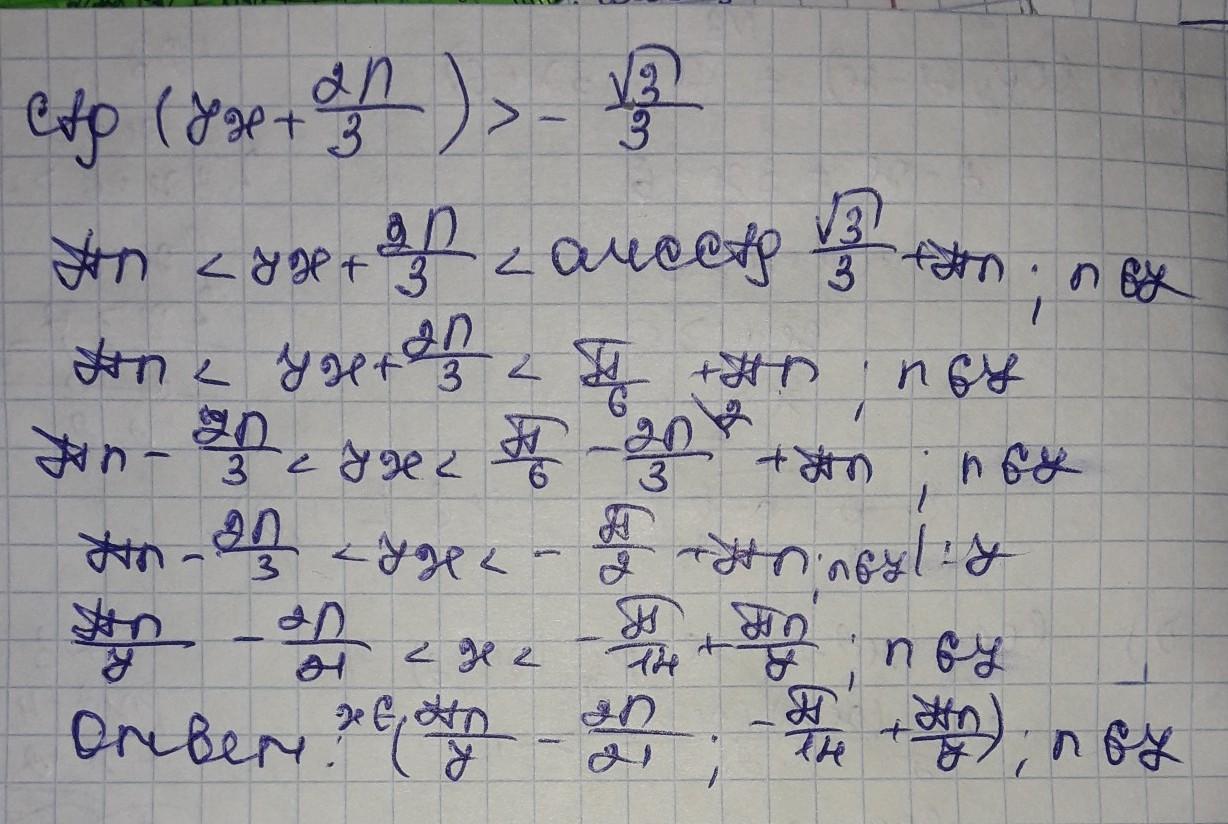 ctg (7x + 2π/3) > - √3/3
πn < 7x + 2π/3 < arcctg √3/3 + πn ; n ∈ Z
πn < 7x + 2π/3 < π/6 + πn ; n ∈ Z
πn - 2π/3 < 7x < π/6 - 2π/3 + πn ; n ∈ Z
πn - 2π/3 < 7x < - π/2 + πn ; n ∈ Z | : 7
πn/7 - 2π/21 < x < - π/14 + πn/7 ; n ∈ Z
Ответ: x ∈ (πn/7 - 2π/21 ; - π/14 + πn/7) ; n ∈ Z